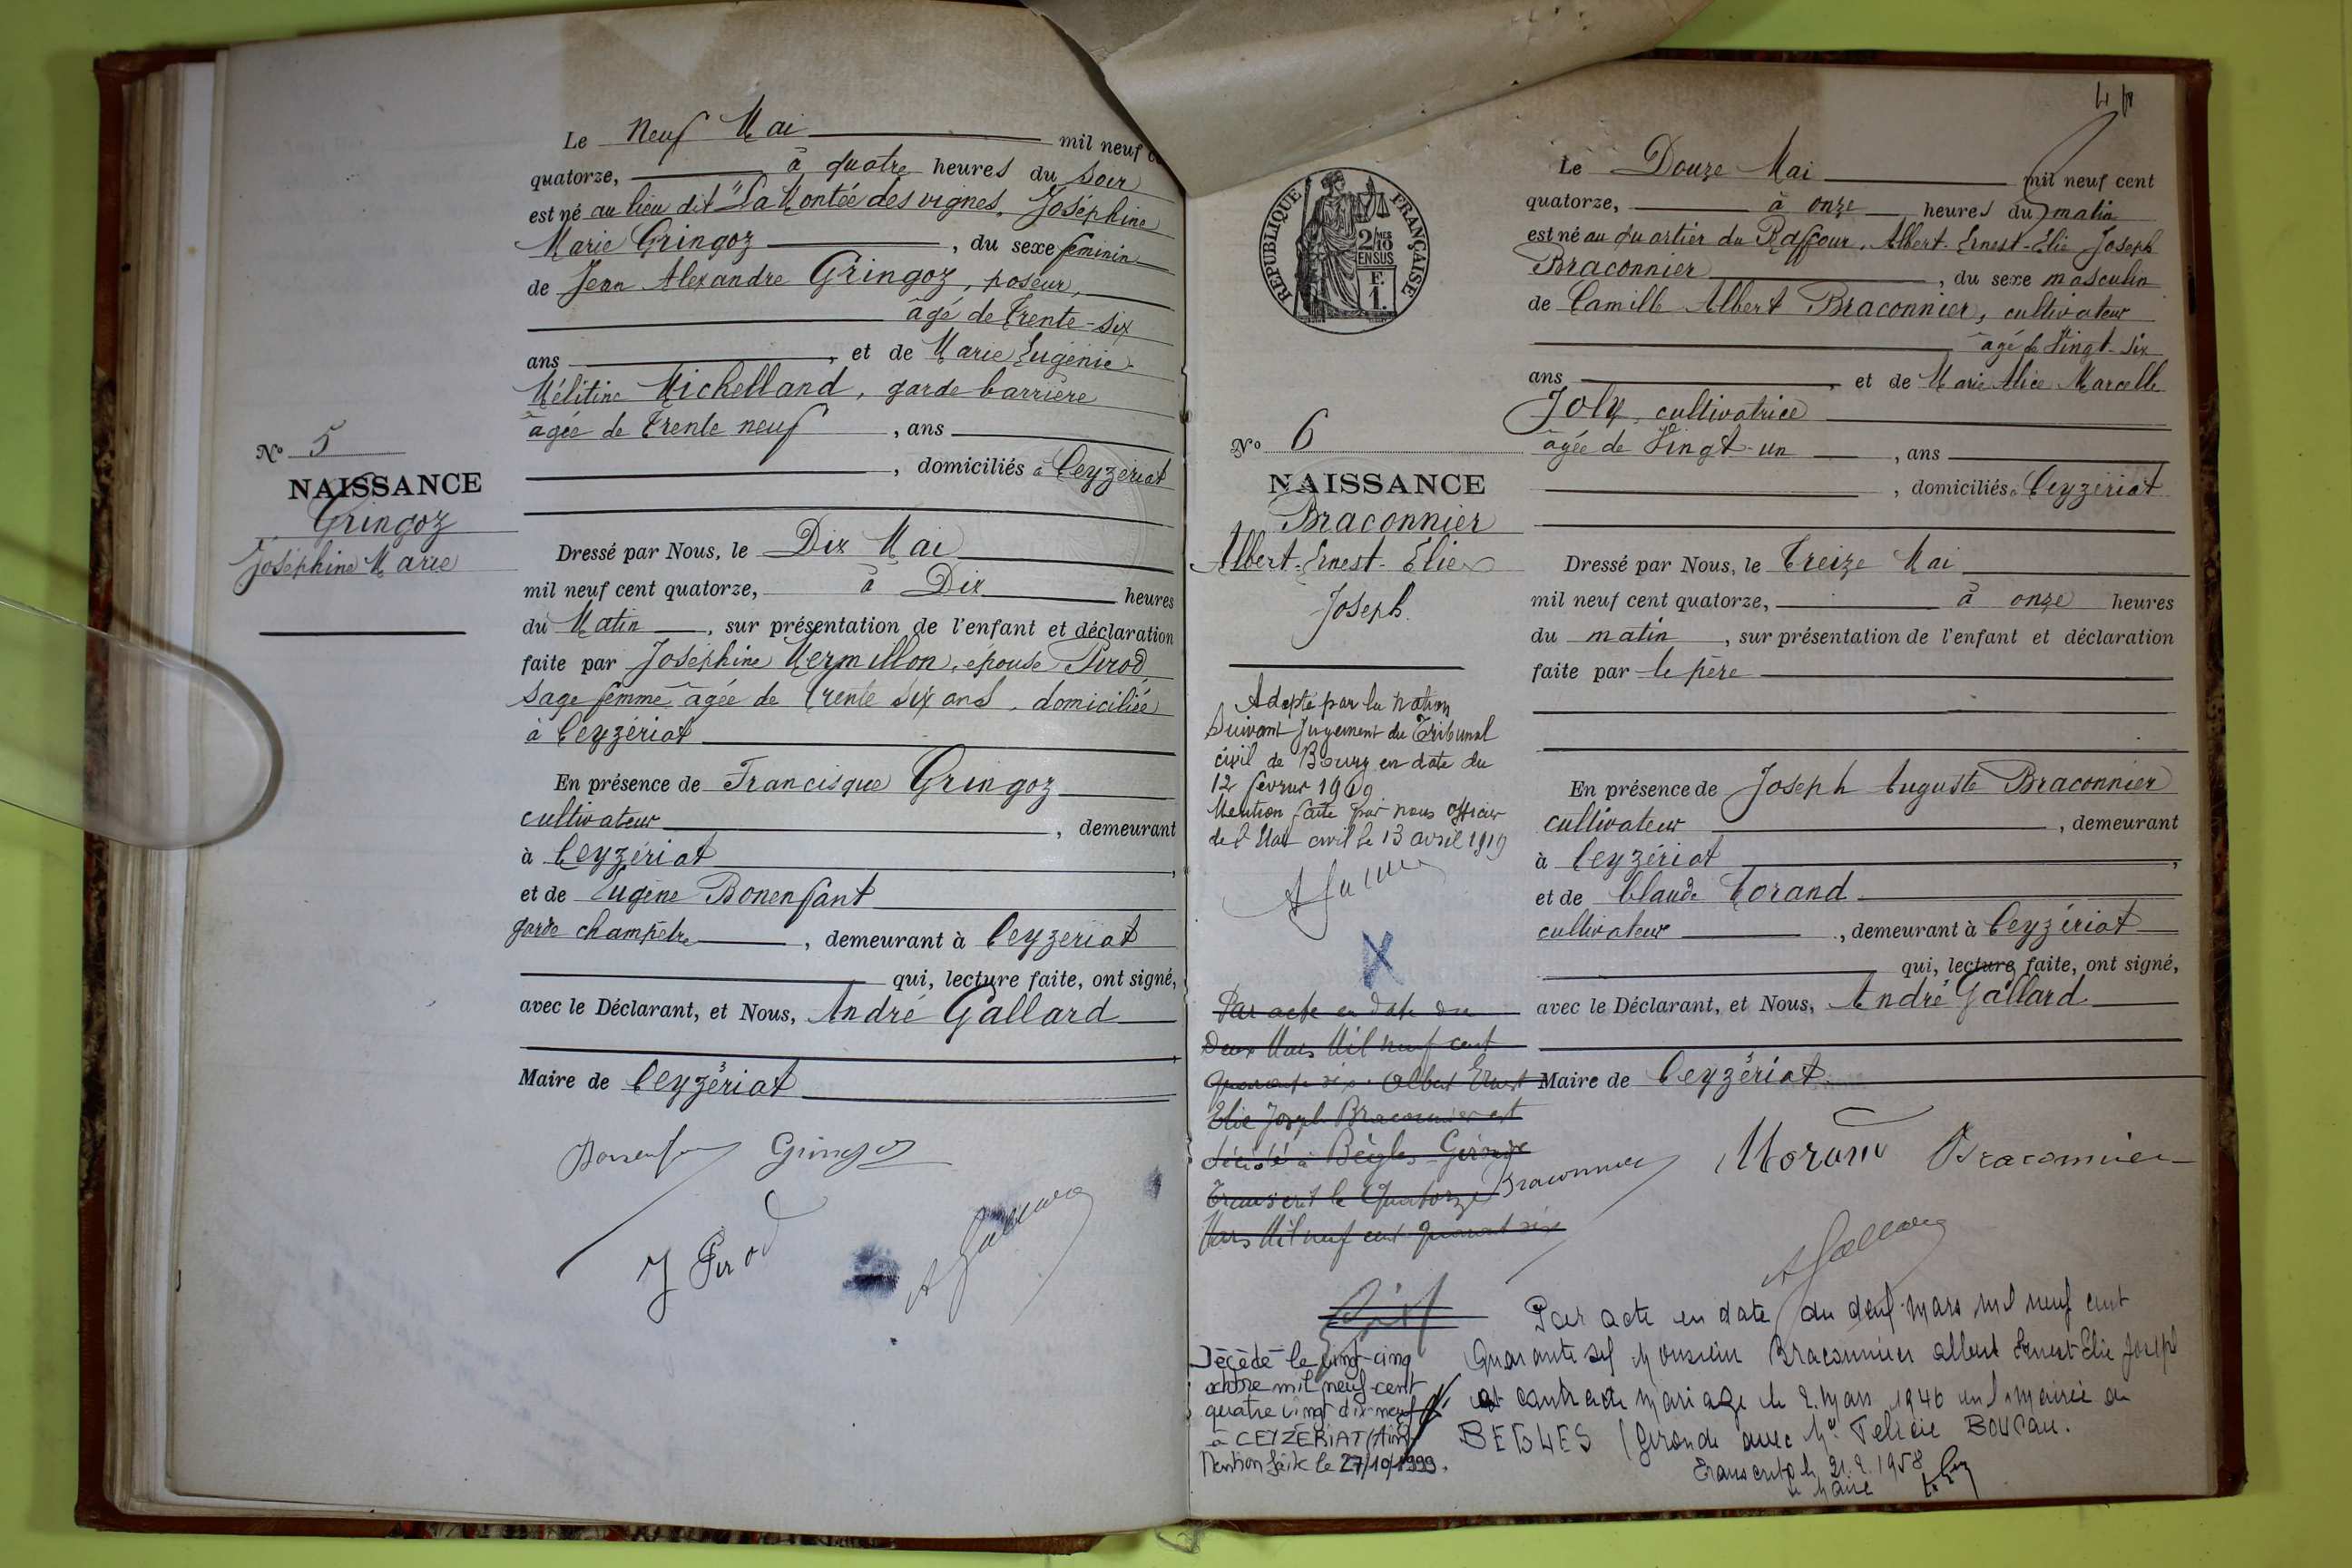 Le Neuf Mai mil neuf
quatorze, à quatre heures du soir
est né au lieu dit "La Montée des vignes, Joséphine
Marie Gringoz, du sexe feminin
de Jean Alexandre Gringoz, poseur,
âgé de Trente-six
ans, et de Marie Eugénie
Mélitine Michelland, garde barrière
âgée de Trente neuf, ans
, domiciliés à Ceyzériat
N° 5
NAISSANCE
Gringoz
Joséphine Marie
Dressé par Nous, le Dix Mai
mil neuf cent quatorze, à Dix heures
du Matin, sur présentation de l'enfant et déclaration
faite par Joséphine Mermillon, épouse Pirod,
sage femme âgée de trente six ans, domiciliée
à Ceyzériat
En présence de Francisque Gringoz
cultivateur, demeurant
à Ceyzériat,
et de Eugène Bonenfant
garde champêtre, demeurant à Ceyzériat
qui, lecture faite, ont signé,
avec le Déclarant, et Nous, André Gallard
Maire de Ceyzériat
Bonenfant Gringoz
J Pirod A Gallard
4
REPUBLIQUE FRANÇAISE
2/10 MES
EN SUS
F.
1.
Le Douze Mai mil neuf cent
quatorze, à onze heures du matin
est né au quartier du Raffour, Albert-Ernest-Elie Joseph
Braconnier, du sexe masculin
de Camille Albert Braconnier, cultivateur
âgé de Vingt-six
ans, et de Marie Alice Marcelle
Joly, cultivatrice
âgée de Vingt-un, ans
, domiciliés à Ceyzériat
N° 6
NAISSANCE
Braconnier
Albert-Ernest-Elie
Joseph.
Dressé par Nous, le Treize Mai
mil neuf cent quatorze, à onze heures
du matin, sur présentation de l'enfant et déclaration
faite par le père
En présence de Joseph Auguste Braconnier
cultivateur, demeurant
à Ceyzériat,
et de Claude Morand
cultivateur, demeurant à Ceyzériat
qui, lecture faite, ont signé,
avec le Déclarant, et Nous, André Gallard
Maire de Ceyzériat
Adopté par la Nation
Suivant Jugement du Tribunal
civil de Bourg en date du
12 fevrier 1919
Mention faite par nous officier
de l'Etat civil le 13 avril 1919
A Gallard
X
Par acte en date du
Deux Mars Mil neuf cent
quarante six. Albert Ernest
Elie Joseph Braconnier est
décédé à Bègles Gironde
Transcrit le Quatorze
Mars Mil neuf cent quarante six
Braconnier Morand Braconnier
A Gallard
Décédé le vingt-cinq
octobre mil neuf-cent
quatre vingt dix-neuf
à CEYZERIAT (Ain)
Mention faite le 27/10/1999.
Par acte en date du deux mars mil neuf cent
Quarante six Monsieur Braconnier albert Ernest Elie Joseph
a contracté mariage le 2 mars 1946 en la mairie de
BEGLES (Gironde avec Felicie BOUCau.
Transcrit le 21.2.1958
Le Maire